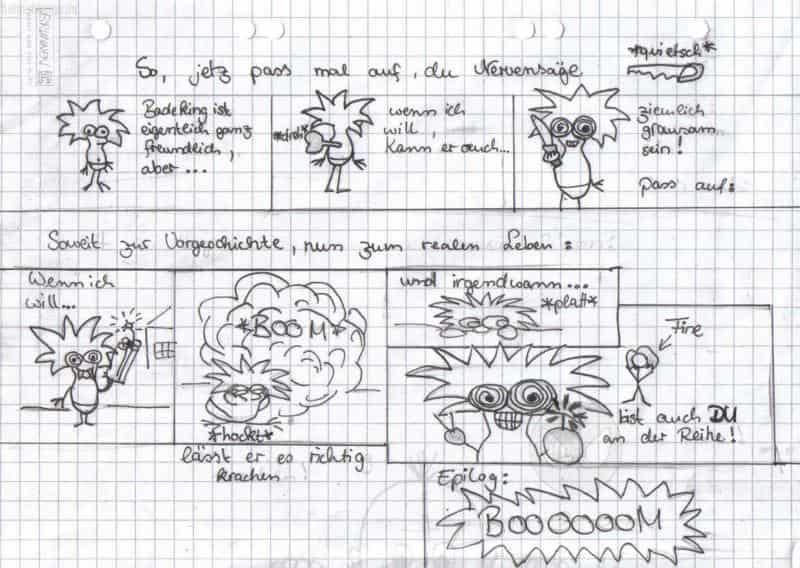 *quietsch*
So, jetz pass mal auf, du Nervensäge
BadeRing ist
eigentlich ganz
freundlich,
aber...
wenn ich
will,
kann er auch...
ziemlich
grausam
sein!
Pass auf:
Soweit zur Vorgeschichte, nun zum realen Leben:
Wenn ich
will...
*BOOM*
*hockt*
lässt er es richtig
krachen!
und irgendwann...
*platt*
Fine
bist auch DU
an der Reihe!
Epilog:
BOOOOOOM